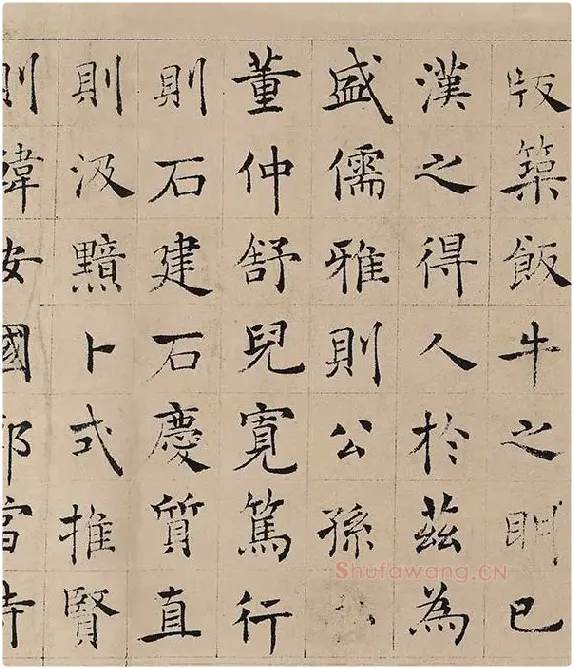 版築飯牛之明已
漢之得人於茲為
盛儒雅則公孫
董仲舒兒寬篤行
則石建石慶質直
則汲黯卜式推賢
則韋安國當寺
Shufawang.CN